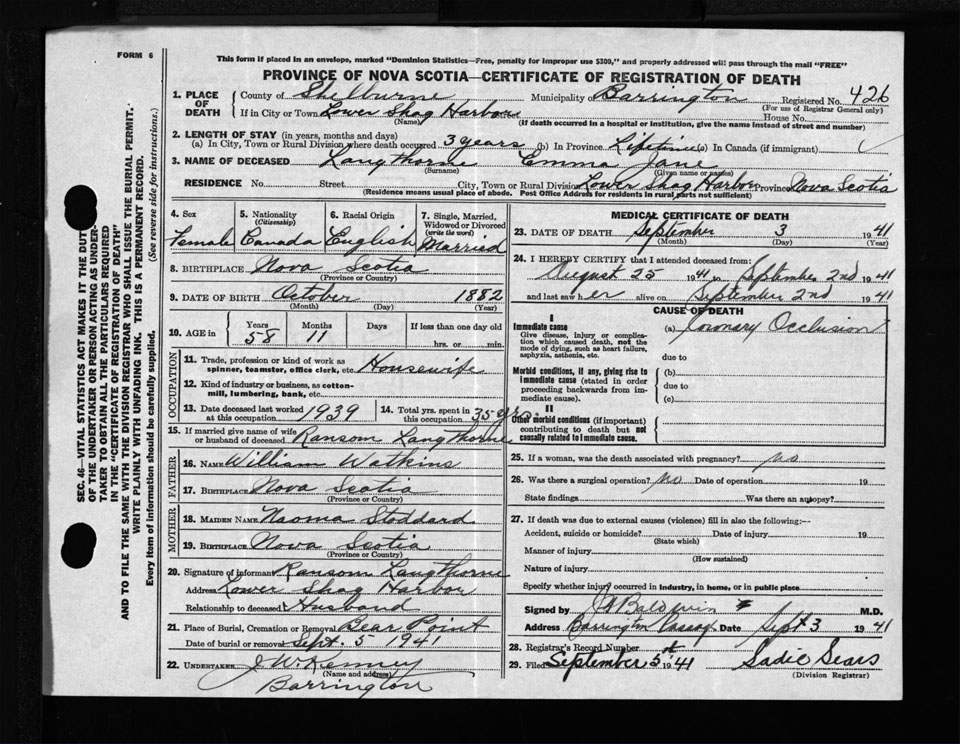 FORM 6
This form if placed in an envelope, marked "Dominion Statistics—Free, penalty for improper use $300," and properly addressed will pass through the mail "FREE"
PROVINCE OF NOVA SCOTIA—CERTIFICATE OF REGISTRATION OF DEATH
SEC. 46—VITAL STATISTICS ACT MAKES IT THE DUTY
OF THE UNDERTAKER OR PERSON ACTING AS UNDER-
TAKER TO OBTAIN ALL THE PARTICULARS REQUIRED
IN THE "CERTIFICATE OF REGISTRATION OF DEATH"
AND TO FILE THE SAME WITH THE DIVISION REGISTRAR WHO SHALL ISSUE THE BURIAL PERMIT.
WRITE PLAINLY WITH UNFADING INK. THIS IS A PERMANENT RECORD.
Every item of information should be carefully supplied. (See reverse side for instructions.)
1. PLACE OF DEATH
County of Shelburne Municipality Barrington Registered No. 426
(For use of Registrar General only)
If in City or Town Lower Shag Harbour House No.
(Name) (If death occurred in a hospital or institution, give the name instead of street and number)
2. LENGTH OF STAY (in years, months and days)
(a) In City, Town or Rural Division where death occurred 3 years (b) In Province Lifetime (c) In Canada (if immigrant)
3. NAME OF DECEASED Langthorne Emma Jane
(Surname) (Given name or names)
RESIDENCE No. Street City, Town or Rural Division Lower Shag Harbor Province Nova Scotia
(Residence means usual place of abode. Post Office Address for residents in rural parts not sufficient)
4. Sex
Female
5. Nationality
(Citizenship)
Canada
6. Racial Origin
English
7. Single, Married,
Widowed or Divorced
(write the word)
Married
8. BIRTHPLACE Nova Scotia
(Province or Country)
9. DATE OF BIRTH October 1882
(Month) (Day) (Year)
10. AGE in Years Months Days If less than one day old
58 11 hrs. or min.
OCCUPATION
11. Trade, profession or kind of work as
spinner, teamster, office clerk, etc. Housewife
12. Kind of industry or business, as cotton-
mill, lumbering, bank, etc.
13. Date deceased last worked
at this occupation 1939
14. Total yrs. spent in
this occupation 35 yrs.
15. If married give name of wife
or husband of deceased Ransom Langthorne
FATHER
16. NAME William Watkins
17. BIRTHPLACE Nova Scotia
(Province or Country)
MOTHER
18. MAIDEN NAME Naoma Stoddard
19. BIRTHPLACE Nova Scotia
(Province or Country)
20. Signature of informant Ransom Langthorne
Address Lower Shag Harbor
Relationship to deceased Husband
21. Place of Burial, Cremation or Removal Bear Point
Date of burial or removal Sept. 5 1941
22. UNDERTAKER J W Kenney
(Name and address)
Barrington
MEDICAL CERTIFICATE OF DEATH
23. DATE OF DEATH September 3 1941
(Month) (Day) (Year)
24. I HEREBY CERTIFY that I attended deceased from:
August 25 1941 to September 2nd 1941
and last saw her alive on September 2nd 1941
CAUSE OF DEATH
I
Immediate cause
Give disease, injury or complica-
tion which caused death, not the
mode of dying, such as heart failure,
asphyxia, asthenia, etc.
(a) Coronary Occlusion
due to
Morbid conditions, if any, giving rise to
immediate cause (stated in order
proceeding backwards from im-
mediate cause).
(b)
due to
(c)
II
Other morbid conditions (if important)
contributing to death but not
causally related to immediate cause.
25. If a woman, was the death associated with pregnancy? No
26. Was there a surgical operation? No Date of operation 19
State findings Was there an autopsy?
27. If death was due to external causes (violence) fill in also the following:—
Accident, suicide or homicide? Date of injury 19
(State which)
Manner of injury
(How sustained)
Nature of injury
Specify whether injury occurred in industry, in home, or in public place
Signed by Baldwin M.D.
Address Barrington Passage Date Sept 3 1941
28. Registrar's Record Number
29. Filed September 5th 1941 Sadie Sears
(Division Registrar)